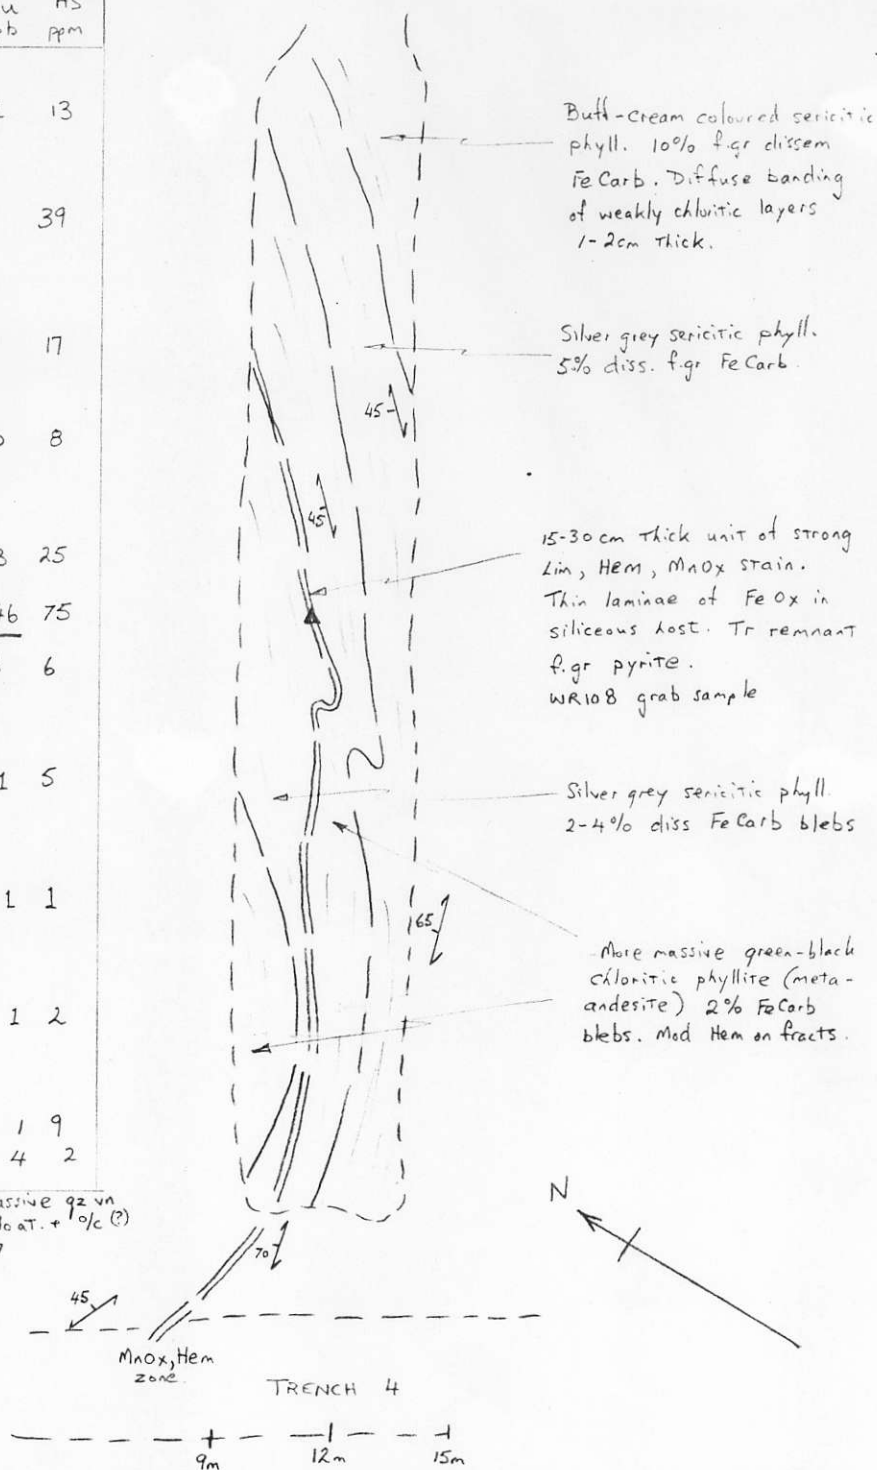 ppm
13
39
17
8
25
75
6
5
1 1
1 2
1 9
4 2
Buff-cream coloured sericitic
phyll. 10% f.gr dissem
Fe Carb. Diffuse banding
of weakly chloritic layers
1-2cm Thick.
Silver grey sericitic phyll.
5% diss. f.gr Fe Carb.
45
45
15-30 cm Thick unit of strong
Lim, Hem, MnOx stain.
Thin laminae of Fe Ox in
siliceous host. Tr remnant
f.gr pyrite.
WR108 grab sample
Silver grey sericitic phyll.
2-4% diss Fe Carb blebs
65
More massive green-black
chloritic phyllite (meta-
andesite) 2% Fe Carb
blebs. Mod Hem on fracts.
qz vn
o/c (?)
N
70
45
MnOx, Hem
zone.
TRENCH 4
9m 12m 15m